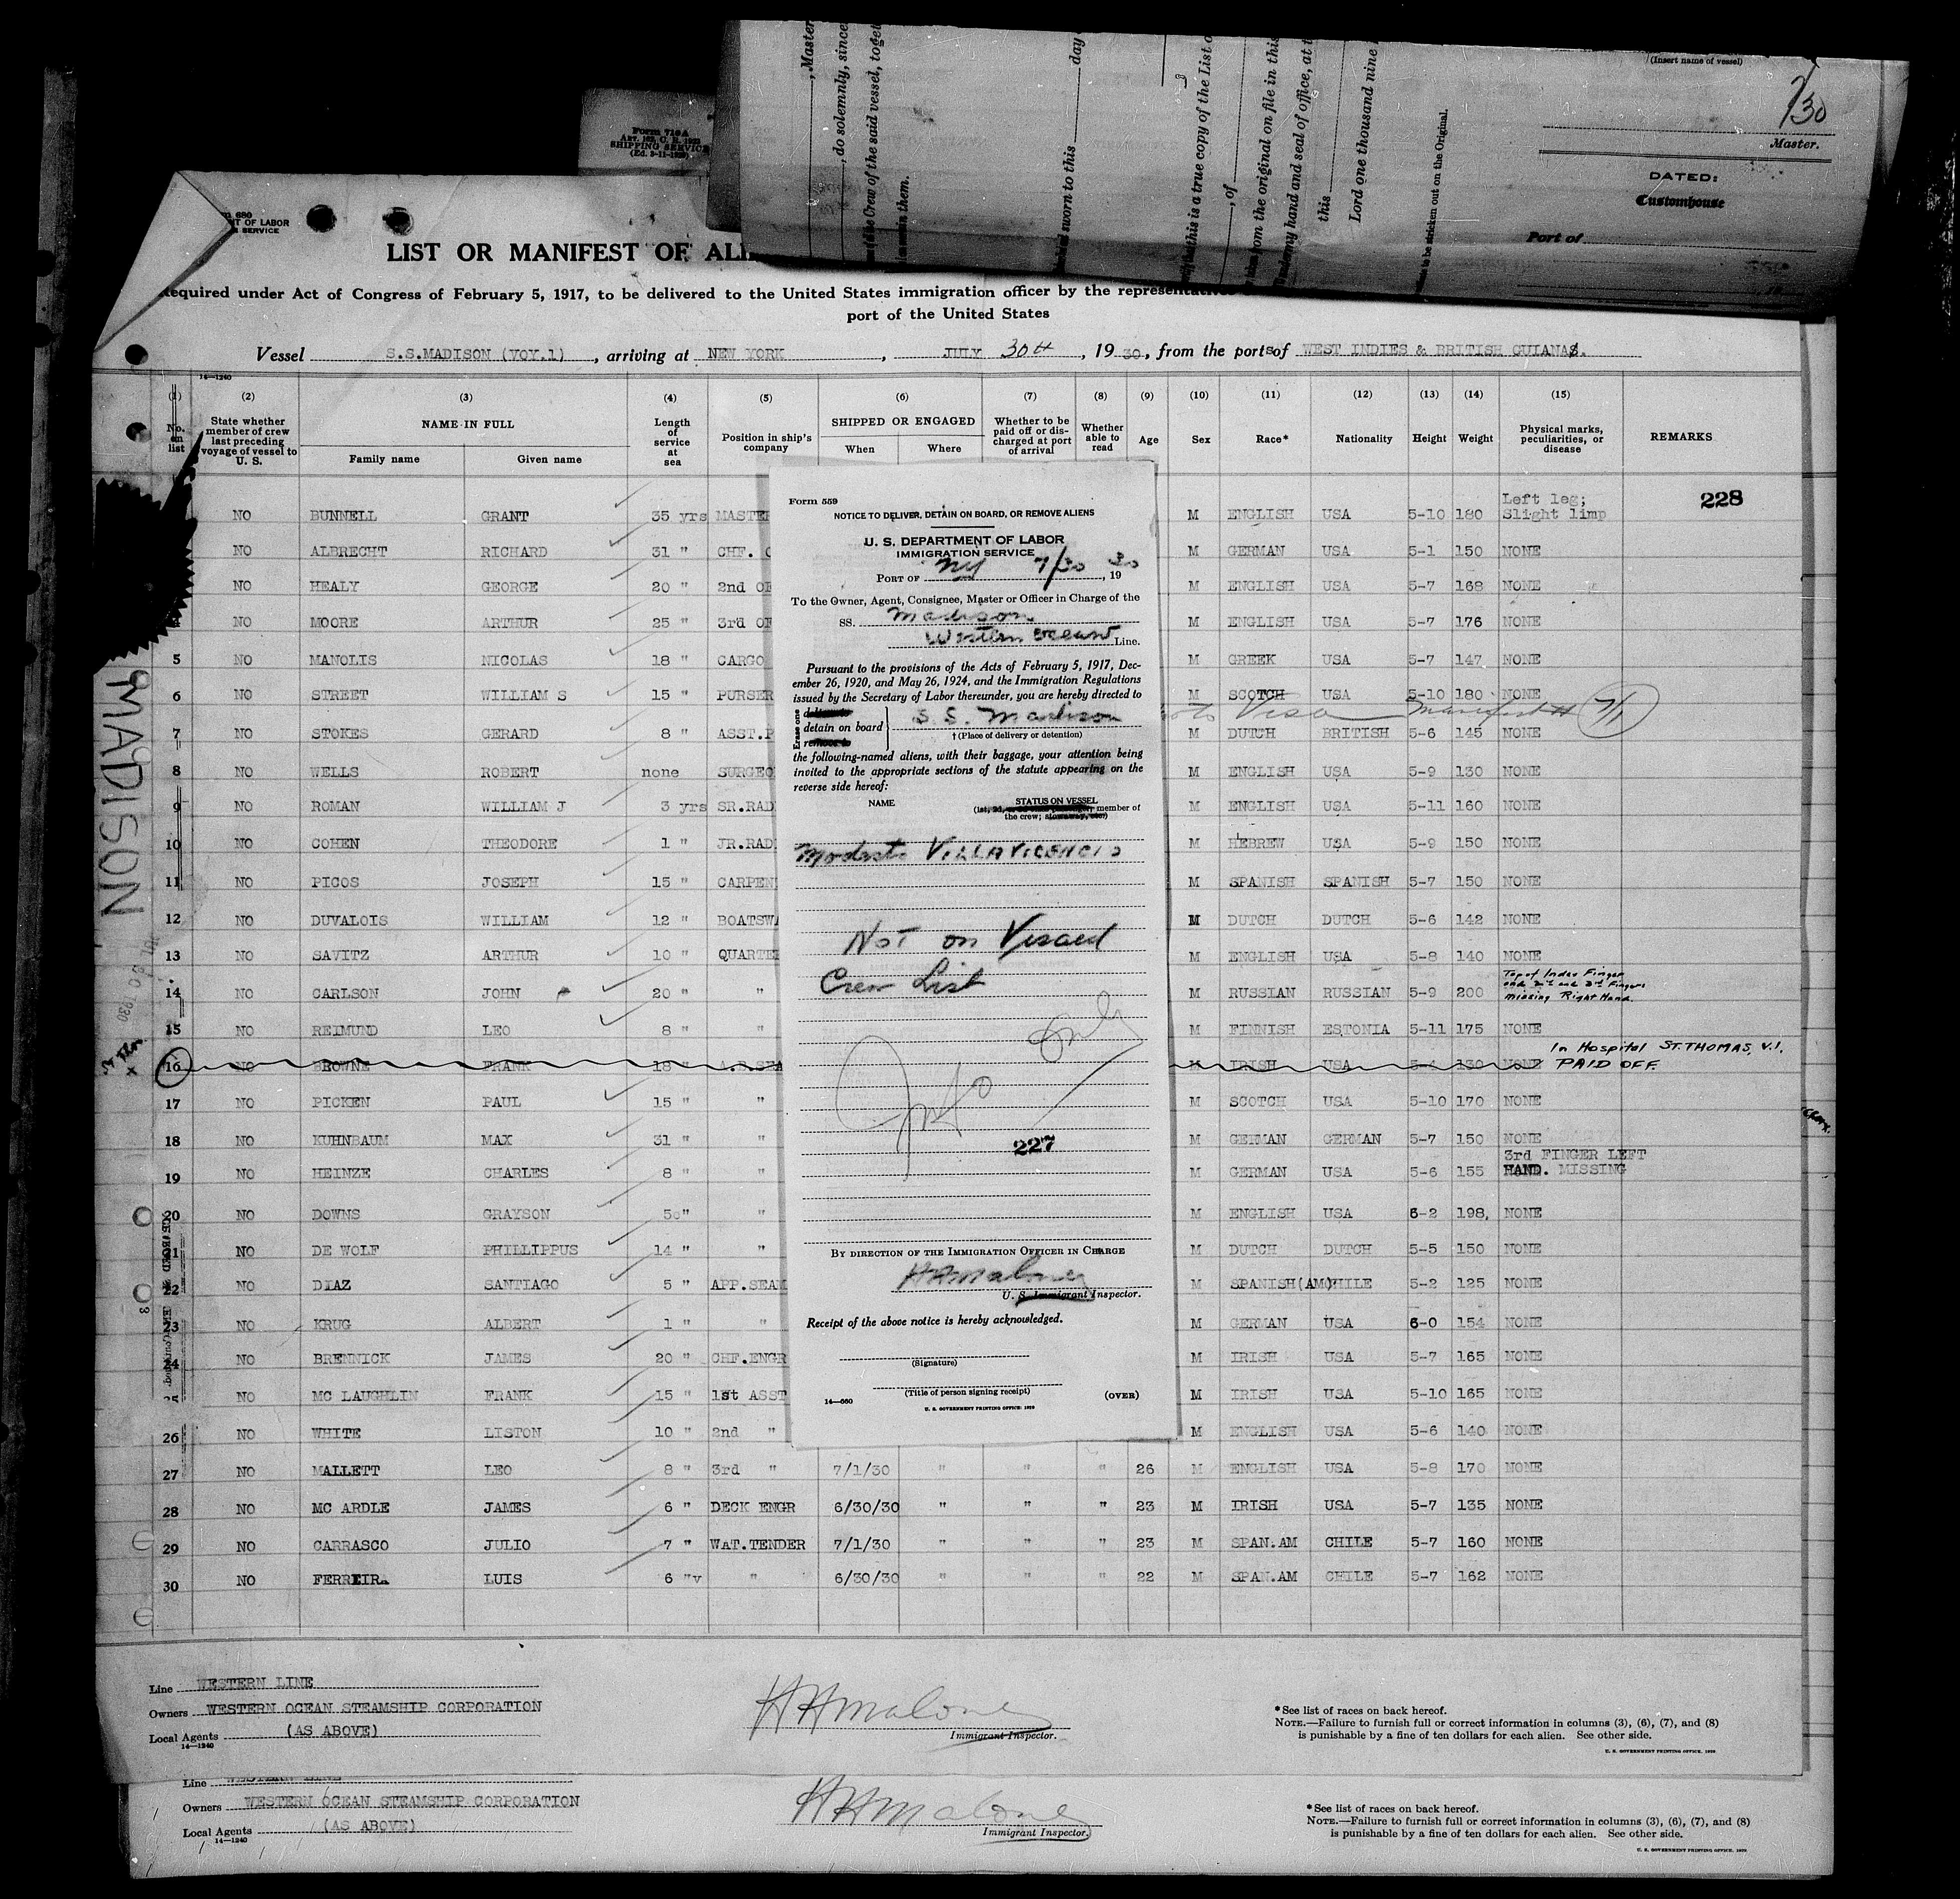 , Master
, do solemnly, since
the Crew of the said vessel, toget
them.
sworn to this day
this is a true copy of the List o
, of
from the original on file in this
my hand and seal of office, at t
this
Lord one thousand nine
to be stricken out on the Original.
(Insert name of vessel)
7/30
Master.
DATED:
Customhouse
Port of
Form 710A
ART. 162, C. R. 1923
SHIPPING SERVICE
680
T OF LABOR
SERVICE
LIST OR MANIFEST OF ALI
equired under Act of Congress of February 5, 1917, to be delivered to the United States immigration officer by the representati
port of the United States
Vessel S.S.MADISON (VOY.1), arriving at NEW YORK, JULY 30th, 1930, from the ports of WEST INDIES & BRITISH GUIANAS.
14—1240
(1) (2) (3) (4) (5) (6) (7) (8) (9) (10) (11) (12) (13) (14) (15)
No. on list State whether member of crew last preceding voyage of vessel to U. S. NAME IN FULL Family name Given name Length of service at sea Position in ship's company SHIPPED OR ENGAGED When Where Whether to be paid off or discharged at port of arrival Whether able to read Age Sex Race* Nationality Height Weight Physical marks, peculiarities, or disease REMARKS
228
NO BUNNELL GRANT 35 yrs MASTER M ENGLISH USA 5-10 180 Left leg; Slight limp
NO ALBRECHT RICHARD 31 " CHF. O M GERMAN USA 5-1 150 NONE
NO HEALY GEORGE 20 " 2nd OF M ENGLISH USA 5-7 168 NONE
4 NO MOORE ARTHUR 25 " 3rd OF M ENGLISH USA 5-7 176 NONE
5 NO MANOLIS NICOLAS 18 " CARGO M GREEK USA 5-7 147 NONE
6 NO STREET WILLIAM S 15 " PURSER M SCOTCH USA 5-10 180 NONE
Visa Manifest 7/1
7 NO STOKES GERARD 8 " ASST.P M DUTCH BRITISH 5-6 145 NONE
8 NO WELLS ROBERT none SURGEO M ENGLISH USA 5-9 130 NONE
9 NO ROMAN WILLIAM J 3 yrs SR.RAD M ENGLISH USA 5-11 160 NONE
10 NO COHEN THEODORE 1 " JR.RAD M HEBREW USA 5-9 150 NONE
11 NO PICOS JOSEPH 15 " CARPEN M SPANISH SPANISH 5-7 150 NONE
12 NO DUVALOIS WILLIAM 12 " BOATSWA M DUTCH DUTCH 5-6 142 NONE
13 NO SAVITZ ARTHUR 10 " QUARTE M ENGLISH USA 5-8 140 NONE
14 NO CARLSON JOHN 20 " " M RUSSIAN RUSSIAN 5-9 200 Top of Index Finger and 2nd and 3rd Fingers missing Right Hand.
15 NO REIMUND LEO 8 " " M FINNISH ESTONIA 5-11 175 NONE
16 NO BROWNE FRANK 18 " A.B.SEA M IRISH USA 5-4 130 NONE In Hospital ST. THOMAS, V.I. PAID OFF.
17 NO PICKEN PAUL 15 " " M SCOTCH USA 5-10 170 NONE
18 NO KUHNBAUM MAX 31 " " M GERMAN GERMAN 5-7 150 NONE
19 NO HEINZE CHARLES 8 " " M GERMAN USA 5-6 155 3rd FINGER LEFT HAND. MISSING
20 NO DOWNS GRAYSON 5 " " M ENGLISH USA 6-2 198, NONE
21 NO DE WOLF PHILLIPPUS 14 " " M DUTCH DUTCH 5-5 150 NONE
22 NO DIAZ SANTIAGO 5 " APP.SEAM M SPANISH(AM) CHILE 5-2 125 NONE
23 NO KRUG ALBERT 1 " " M GERMAN USA 6-0 154 NONE
24 NO BRENNICK JAMES 20 " CHF.ENGR M IRISH USA 5-7 165 NONE
25 NO MC LAUGHLIN FRANK 15 " 1st ASST M IRISH USA 5-10 165 NONE
26 NO WHITE LISTON 10 " 2nd " M ENGLISH USA 5-6 140 NONE
27 NO MALLETT LEO 8 " 3rd " 7/1/30 " " " 26 M ENGLISH USA 5-8 170 NONE
28 NO MC ARDLE JAMES 6 " DECK ENGR 6/30/30 " " " 23 M IRISH USA 5-7 135 NONE
29 NO CARRASCO JULIO 7 " WAT.TENDER 7/1/30 " " " 23 M SPAN.AM CHILE 5-7 160 NONE
30 NO FERREIRA LUIS 6 "v " 6/30/30 " " " 22 M SPAN.AM CHILE 5-7 162 NONE
MADISON
Form 559
NOTICE TO DELIVER, DETAIN ON BOARD, OR REMOVE ALIENS
U. S. DEPARTMENT OF LABOR
IMMIGRATION SERVICE
PORT OF NY 7/30, 1930
To the Owner, Agent, Consignee, Master or Officer in Charge of the
SS. Madison
Western Ocean Line.
Pursuant to the provisions of the Acts of February 5, 1917, Dec-
ember 26, 1920, and May 26, 1924, and the Immigration Regulations
issued by the Secretary of Labor thereunder, you are hereby directed to
Erase one
deliver to
detain on board S.S. Madison
remove to
† (Place of delivery or detention)
the following-named aliens, with their baggage, your attention being
invited to the appropriate sections of the statute appearing on the
reverse side hereof:
NAME STATUS ON VESSEL
member of
the crew;
Modesto VILLAVICENCIO
Not on Visaed
Crew List
Only
227
BY DIRECTION OF THE IMMIGRATION OFFICER IN CHARGE
HHMaloney
U. S. Immigrant Inspector.
Receipt of the above notice is hereby acknowledged.
(Signature)
(Title of person signing receipt)
14—660 (OVER)
U. S. GOVERNMENT PRINTING OFFICE: 1929
Line WESTERN LINE
Owners WESTERN OCEAN STEAMSHIP CORPORATION
Local Agents (AS ABOVE)
14—1240
HHMaloney
Immigrant Inspector.
*See list of races on back hereof.
NOTE.—Failure to furnish full or correct information in columns (3), (6), (7), and (8)
is punishable by a fine of ten dollars for each alien. See other side.
U. S. GOVERNMENT PRINTING OFFICE. 1929
Line WESTERN LINE
Owners WESTERN OCEAN STEAMSHIP CORPORATION
Local Agents (AS ABOVE)
14—1240
HHMaloney
Immigrant Inspector.
*See list of races on back hereof.
NOTE.—Failure to furnish full or correct information in columns (3), (6), (7), and (8)
is punishable by a fine of ten dollars for each alien. See other side.
U. S. GOVERNMENT PRINTING OFFICE. 1929